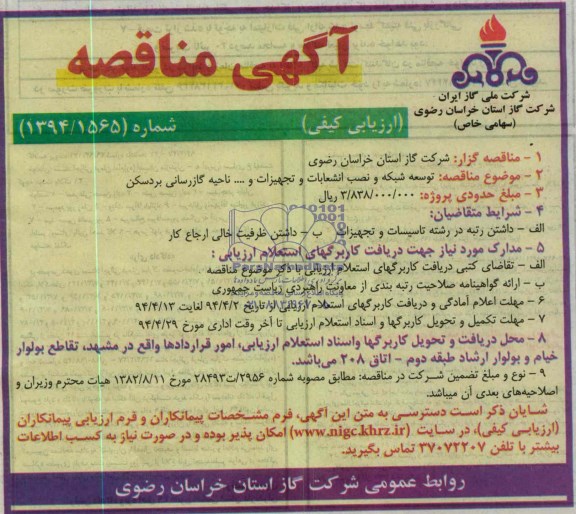 آگهی مناقصه
شرکت ملی گاز ایران
شرکت گاز استان خراسان رضوی
(سهامی خاص)
(ارزیابی کیفی)
شماره (۱۳۹۴/۱۵۶۵)
۱ - مناقصه گزار: شرکت گاز استان خراسان رضوی
۲ - موضوع مناقصه: توسعه شبکه و نصب انشعابات و تجهیزات و .... ناحیه گازرسانی بردسکن
۳ - مبلغ حدودی پروژه: ۳/۸۳۸/۰۰۰/۰۰۰ ریال
۴ - شرایط متقاضیان:
الف - داشتن رتبه در رشته تاسیسات و تجهیزات ب - داشتن ظرفیت خالی ارجاع کار
۵ - مدارک مورد نیاز جهت دریافت کاربرگهای استعلام ارزیابی :
الف - تقاضای کتبی دریافت کاربرگهای استعلام ارزیابی با ذکر موضوع مناقصه
ب - ارائه گواهینامه صلاحیت رتبه بندی از معاونت راهبردی ریاست جمهوری
۶ - مهلت اعلام آمادگی و دریافت کاربرگهای استعلام ارزیابی از تاریخ ۹۴/۴/۲ لغایت ۹۴/۴/۱۳
۷ - مهلت تکمیل و تحویل کاربرگها و اسناد استعلام ارزیابی تا آخر وقت اداری مورخ ۹۴/۴/۲۹
۸ - محل دریافت و تحویل کاربرگها واسناد استعلام ارزیابی، امور قراردادها واقع در مشهد، تقاطع بولوار
خیام و بولوار ارشاد طبقه دوم - اتاق ۲۰۸ می‌باشد.
۹ - نوع و مبلغ تضمین شرکت در مناقصه: مطابق مصوبه شماره ۲۹۵۶/ت۲۸۴۹۳ مورخ ۱۳۸۲/۸/۱۱ هیات محترم وزیران و
اصلاحیه‌های بعدی آن میباشد.
شایان ذکر است دسترسی به متن این آگهی، فرم مشخصات پیمانکاران و فرم ارزیابی پیمانکاران
(ارزیابی کیفی)، در سایت (www.nigc.khrz.ir) امکان پذیر بوده و در صورت نیاز به کسب اطلاعات
بیشتر با تلفن ۳۷۰۷۲۲۰۷ تماس بگیرید.
روابط عمومی شرکت گاز استان خراسان رضوی